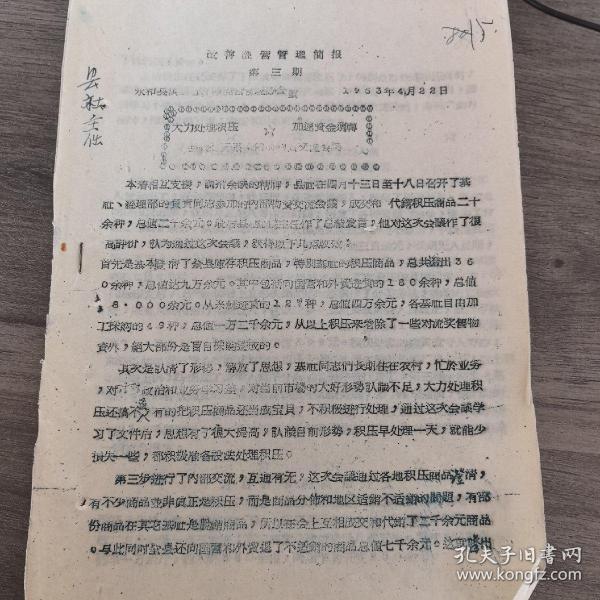 改善经营管理简报
第三期
1963年4月22日
县社主任
大力处理积压 加速资金周转
本着相互支援,调剂余缺的精神,县社在四月十三日至十八日召开了基
社、经理部的负责同志参加的内部物资交流会议,成交和代销积压商品二十
余种,总值二千余元。
高评价,认为通过这次会议,获得以下几点收获:
首先是基本摸清了全县库存积压商品,特别基社的积压商品,总共排出36
0余种,总值达九万余元。其中包括向国营和外资进货的180余种,总值
8.000余元。从系统进货的127种,总值四万余元,各基社自由加
工采购的49种,总值一万二千余元,从以上积压来看除了一些对流奖售物
资外,绝大部份是盲目采购造成的。
其次是认清了形势,解放了思想,基社同志们长期住在农村,忙于业务,
对政治和业务学习差,对当前市场的大好形势认识不足,大力处理积
压还搞不 有的把积压商品还当成宝贝,不积极进行处理,通过这次会议学
习了文件后,思想有了很大提高,认识目前形势,积压早处理一天,就能少
损失一些,都积极准备设法处理积压。
第三步进行了内部交流,互通有无,这次会议通过各地积压商品 清,
有不少商品并非真正是积压,而是商品分布和地区适销不适销的问题,有部
份商品在其它基社是脱销商品,所以在会上互相成交和代销了二千余元商品
。与此同时全县还向国营和外资退了不适销的商品总值七千余元。这
孔夫子旧书网
www.kongfz.com